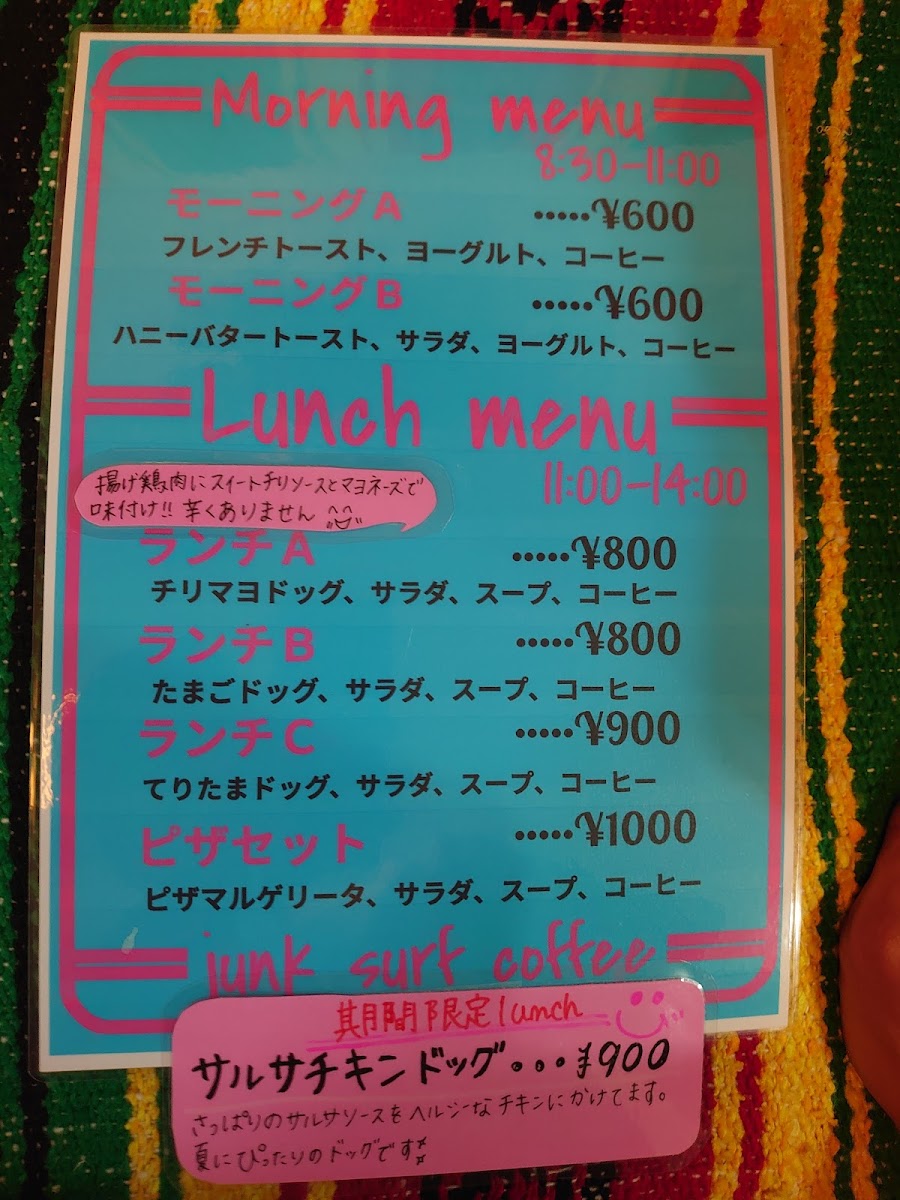 Morning menu
8:30-11:00
モーニングA
•••••¥600
フレンチトースト、ヨーグルト、コーヒー
モーニングB
•••••¥600
ハニーバタートースト、サラダ、ヨーグルト、コーヒー
Lunch menu
11:00-14:00
揚げ鶏肉にスイートチリソースとマヨネーズで
味付け!! 辛くありません
ランチA
•••••¥800
チリマヨドッグ、サラダ、スープ、コーヒー
ランチB
•••••¥800
たまごドッグ、サラダ、スープ、コーヒー
ランチC
•••••¥900
てりたまドッグ、サラダ、スープ、コーヒー
ピザセット
•••••¥1000
ピザマルゲリータ、サラダ、スープ、コーヒー
junk surf coffee
期間限定lunch
サルサチキンドッグ...¥900
さっぱりのサルサソースをヘルシーなチキンにかけてます。
夏にぴったりのドッグです!